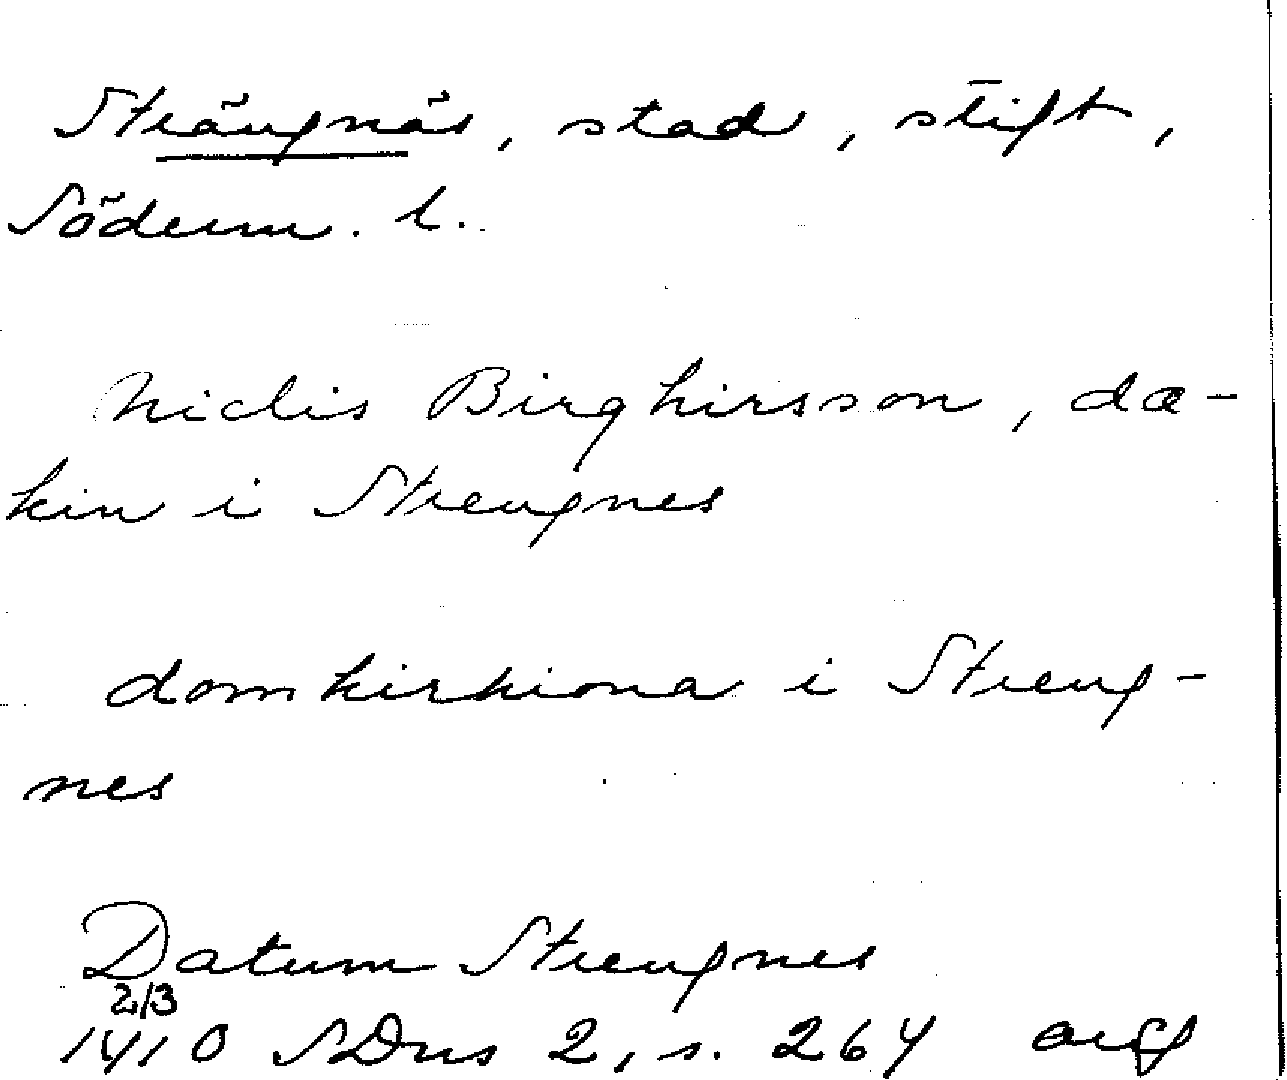 Strängnäs, stad, stift,
Söderm. l.
Niclis Birghirsson, dæ-
kin i Strengnes
domkirkiona i Streng-
nes
Datum Strengnes
2/3
1410 SDns 2, s. 264 orig